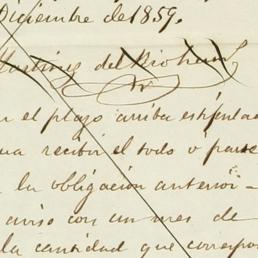 Diciembre de 1859.
Martinez del Rio herm
en el plazo arriba estipulado
para recibir el todo o parte
la obligación anteri-
aviso con un mes de
la cantidad que corresp